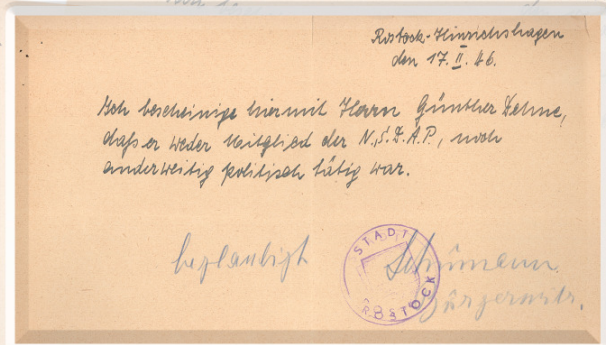 Rostock-Hinrichshagen
den 17. II. 46.
Ich bescheinige hiermit Herrn Günther Dehne,
daß er weder Mitglied der N.S.D.A.P., noch
anderweitig politisch tätig war.
beglaubigt Schümann
Bürgermstr.
STADT
ROSTOCK